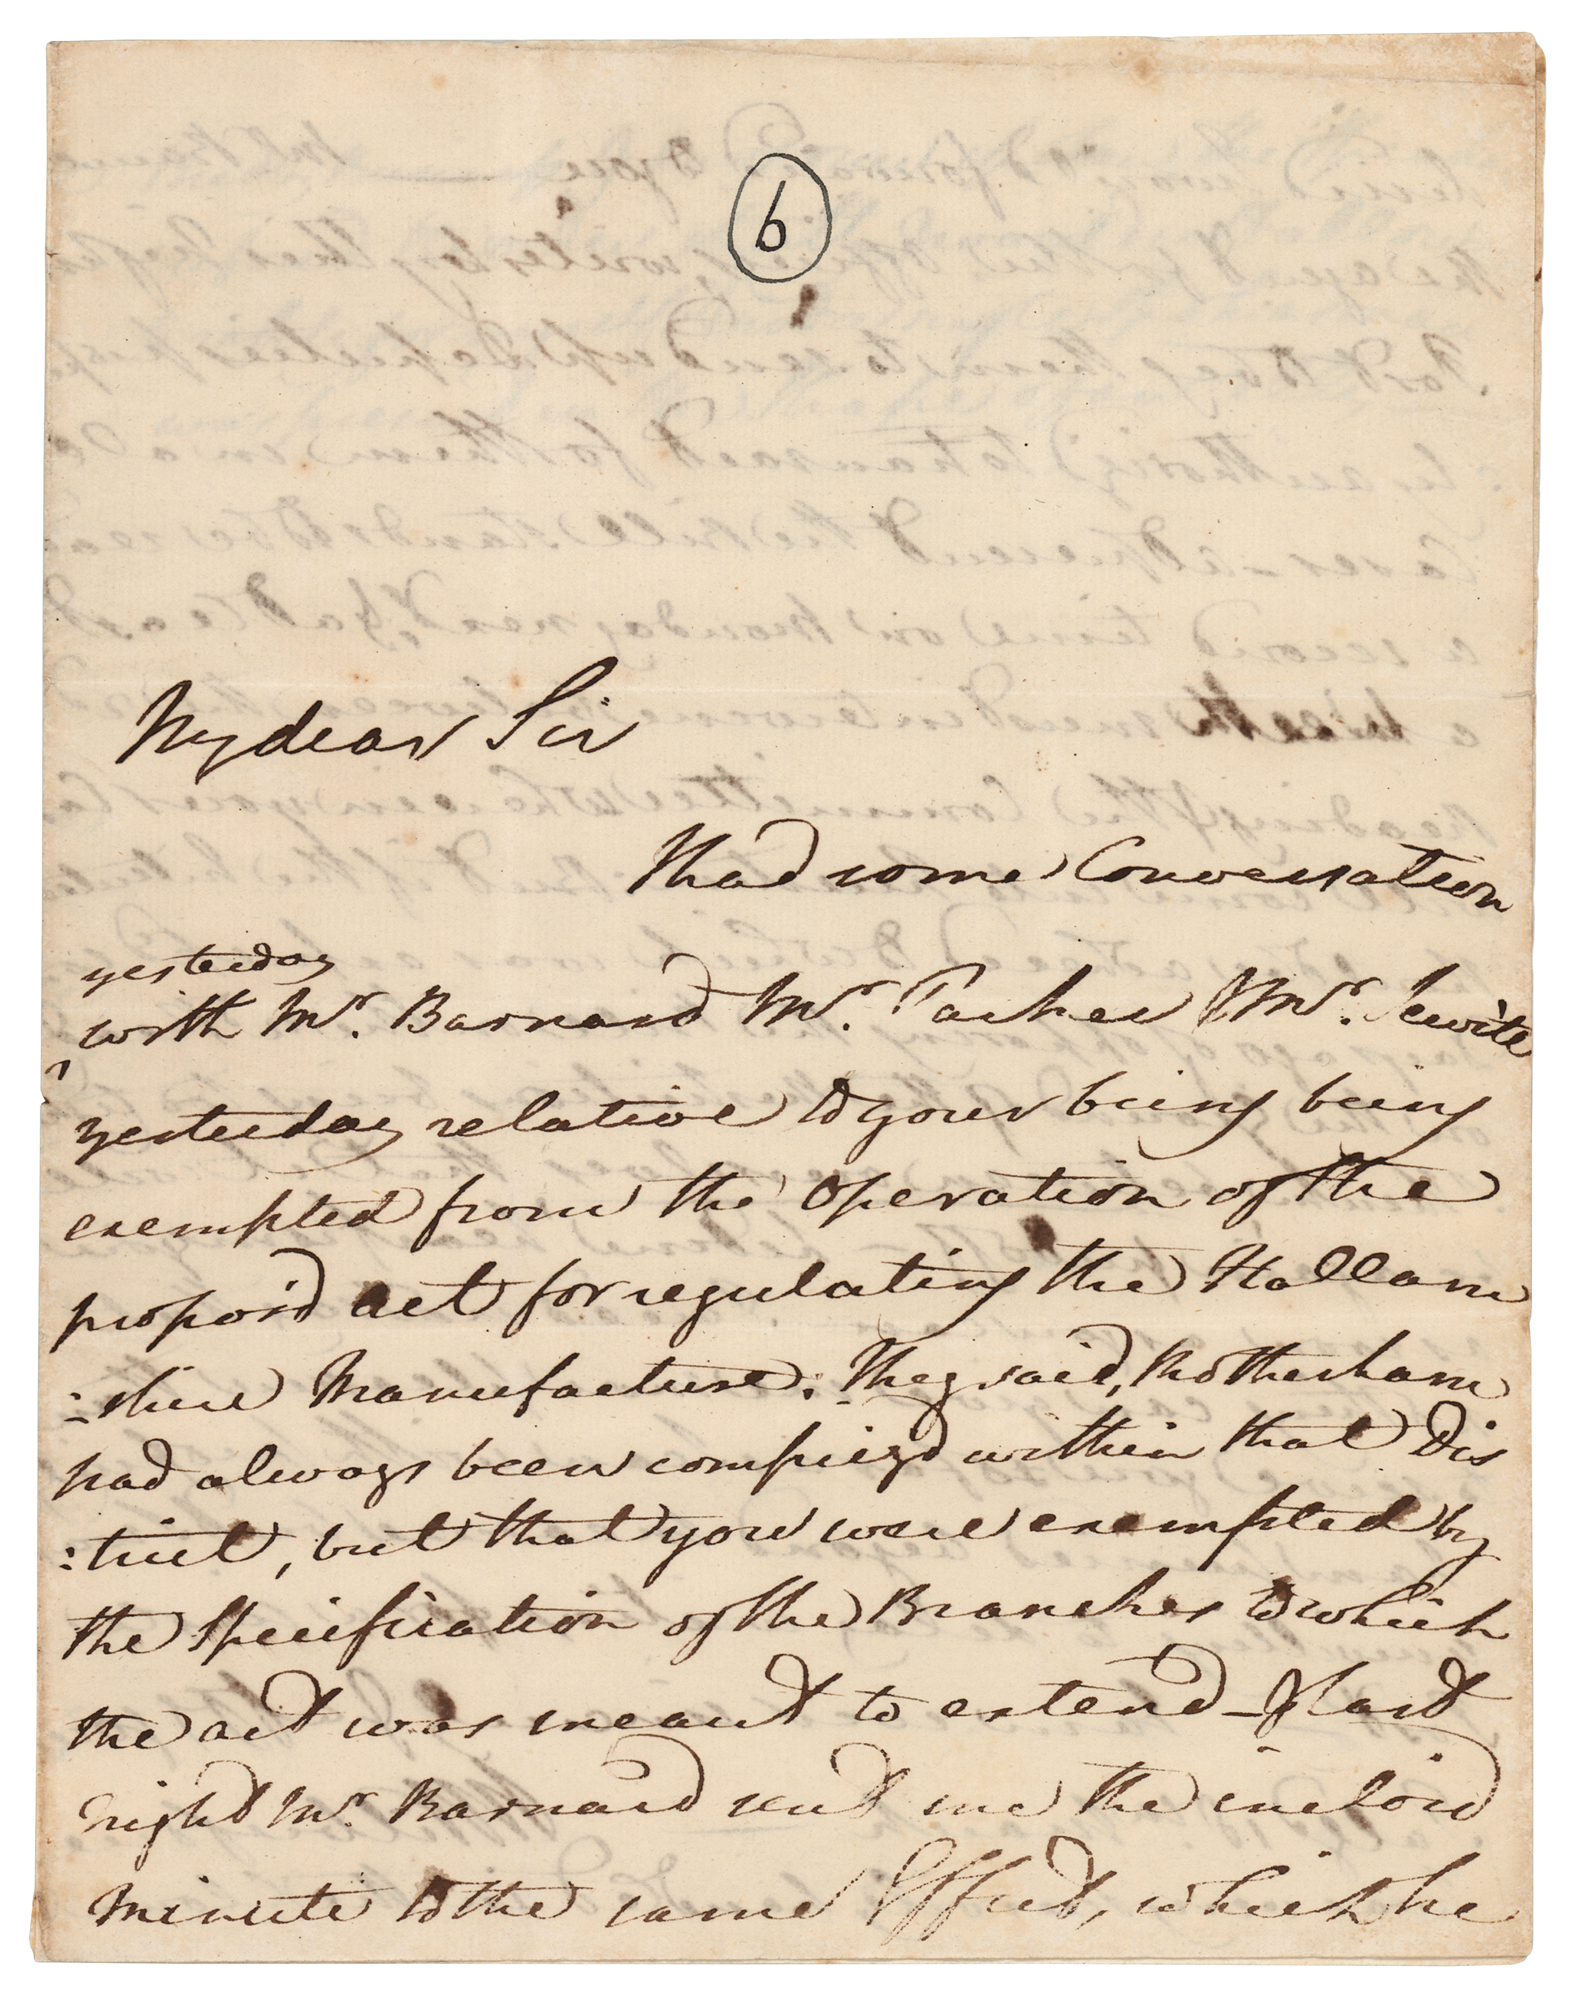 6
My dear Sir
I had some Conversation
yesterday
with Mr. Barnard Mr. Parker & Mr.
yesterday relative to your being being
exempted from the Operation of the
propos'd Act for regulating the Hallam
:shire Manufacture. They said, Rotherham
had always been compriz'd within that Dis
:trict, but that you were exempted by
the Specification of the Branches to which
the act was meant to extend _ & last
night Mr. Barnard sent me the inclosd
Minute to the same Effect, which he